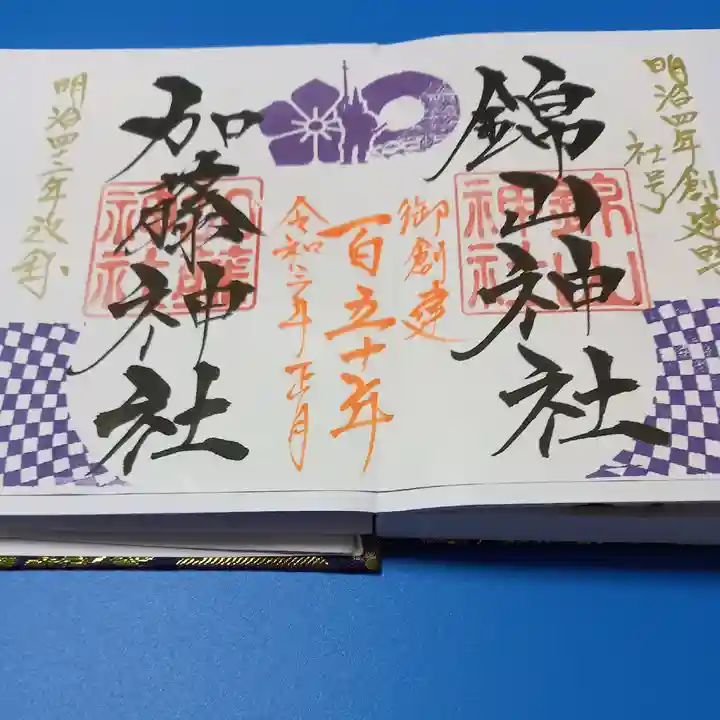 明治四年創建時
社号
錦山神社
錦山
神社
御創建
百五十年
令和三年正月
加藤神社
加藤
神社
明治四二年改称